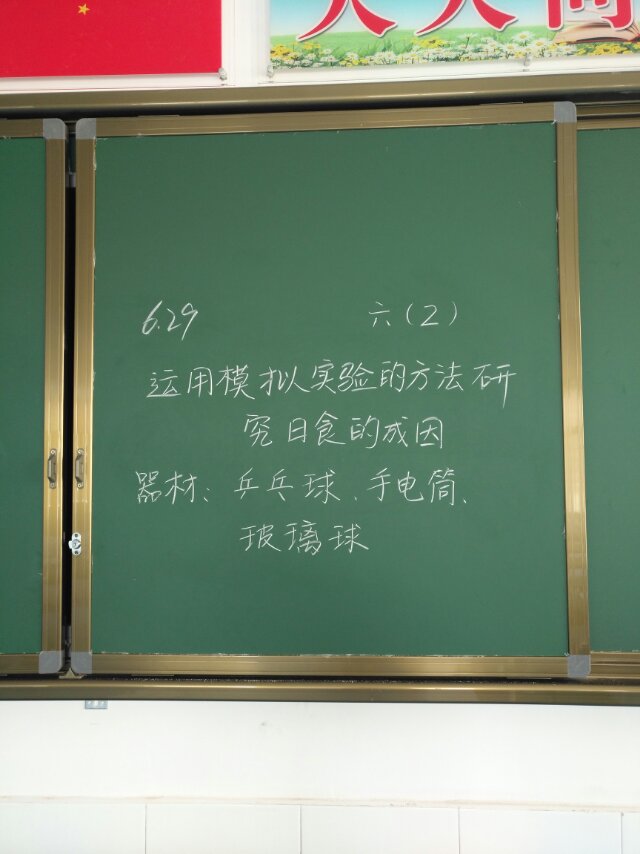 6.29 六(2)
运用模拟实验的方法研
究日食的成因
器材:乒乓球、手电筒、
玻璃球